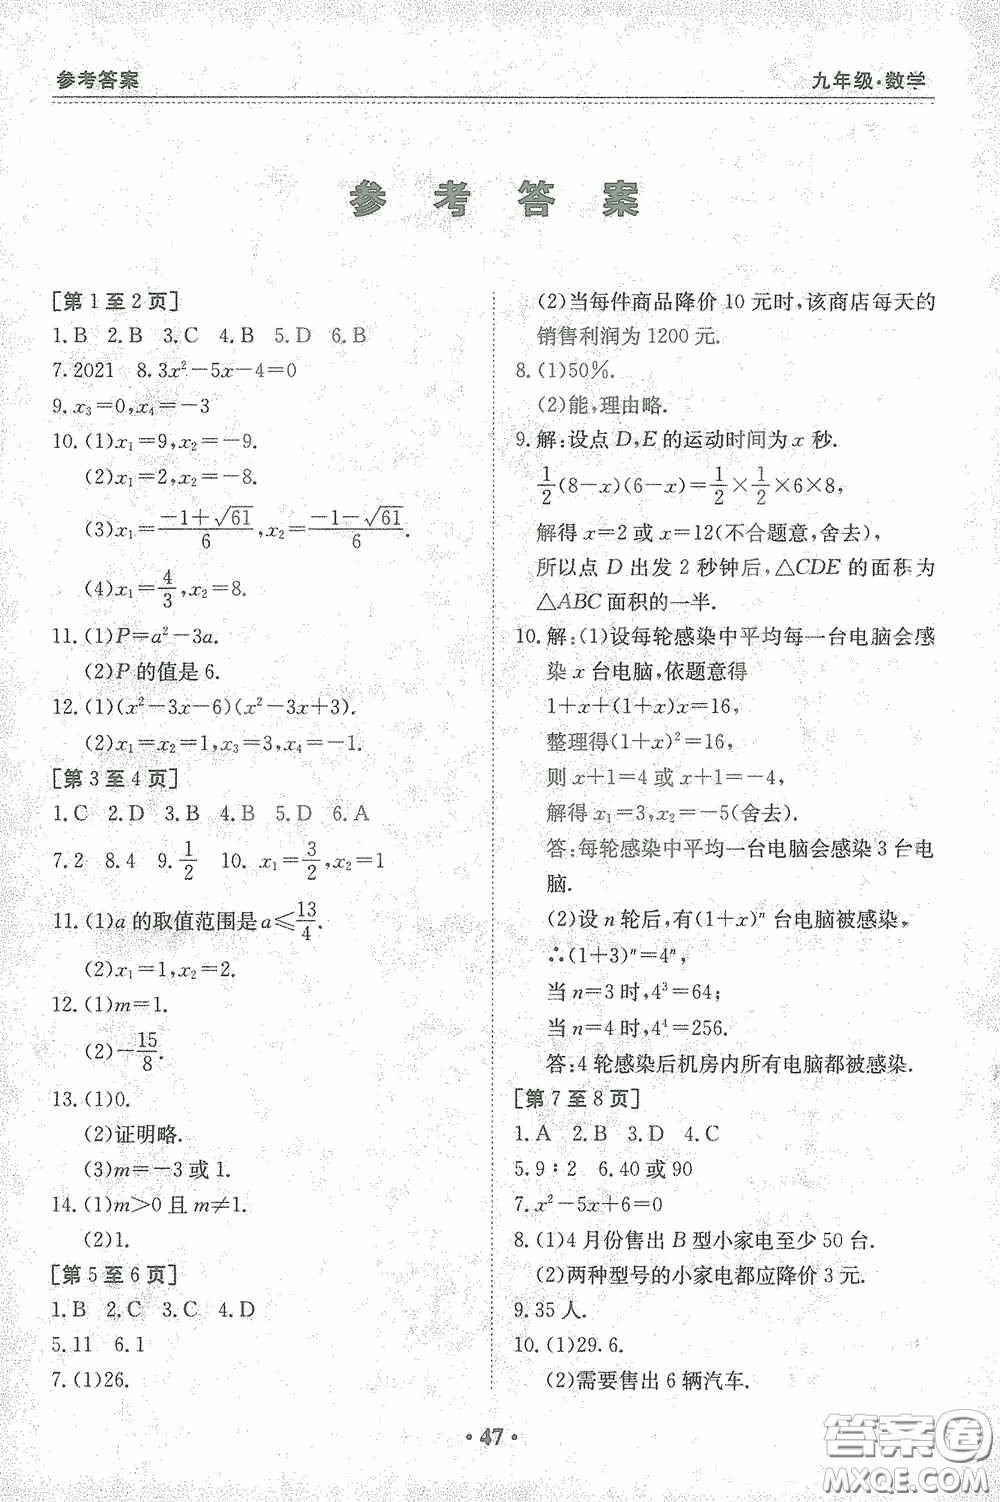 参考答案
九年级·数学
参考答案
[第1至2页]
1.B 2.B 3.C 4.B 5.D 6.B
7.2021 8.3x²－5x－4＝0
9.x₃＝0,x₄＝－3
10.(1)x₁＝9,x₂＝－9.
(2)x₁＝2,x₂＝－8.
(3)x₁＝(－1＋√61)/6,x₂＝(－1－√61)/6.
(4)x₁＝4/3,x₂＝8.
11.(1)P＝a²－3a.
(2)P的值是6.
12.(1)(x²－3x－6)(x²－3x＋3).
(2)x₁＝x₂＝1,x₃＝3,x₄＝－1.
[第3至4页]
1.C 2.D 3.B 4.B 5.D 6.A
7.2 8.4 9.1/2 10.x₁＝3/2,x₂＝1
11.(1)a的取值范围是a≤13/4.
(2)x₁＝1,x₂＝2.
12.(1)m＝1.
(2)－15/8.
13.(1)0.
(2)证明略.
(3)m＝－3或1.
14.(1)m＞0且m≠1.
(2)1.
[第5至6页]
1.B 2.C 3.C 4.D
5.11 6.1
7.(1)26.
(2)当每件商品降价10元时,该商店每天的
销售利润为1200元.
8.(1)50%.
(2)能,理由略.
9.解:设点D,E的运动时间为x秒.
1/2(8－x)(6－x)＝1/2×1/2×6×8,
解得x＝2或x＝12(不合题意,舍去),
所以点D出发2秒钟后,△CDE的面积为
△ABC面积的一半.
10.解:(1)设每轮感染中平均每一台电脑会感
染x台电脑,依题意得
1＋x＋(1＋x)x＝16,
整理得(1＋x)²＝16,
则x＋1＝4或x＋1＝－4,
解得x₁＝3,x₂＝－5(舍去).
答:每轮感染中平均一台电脑会感染3台电
脑.
(2)设n轮后,有(1＋x)ⁿ台电脑被感染,
∴(1＋3)ⁿ＝4ⁿ,
当n＝3时,4³＝64;
当n＝4时,4⁴＝256.
答:4轮感染后机房内所有电脑都被感染.
[第7至8页]
1.A 2.B 3.D 4.C
5.9∶2 6.40或90
7.x²－5x＋6＝0
8.(1)4月份售出B型小家电至少50台.
(2)两种型号的小家电都应降价3元.
9.35人.
10.(1)29.6.
(2)需要售出6辆汽车.
·47·
答案圈
MXQE.COM